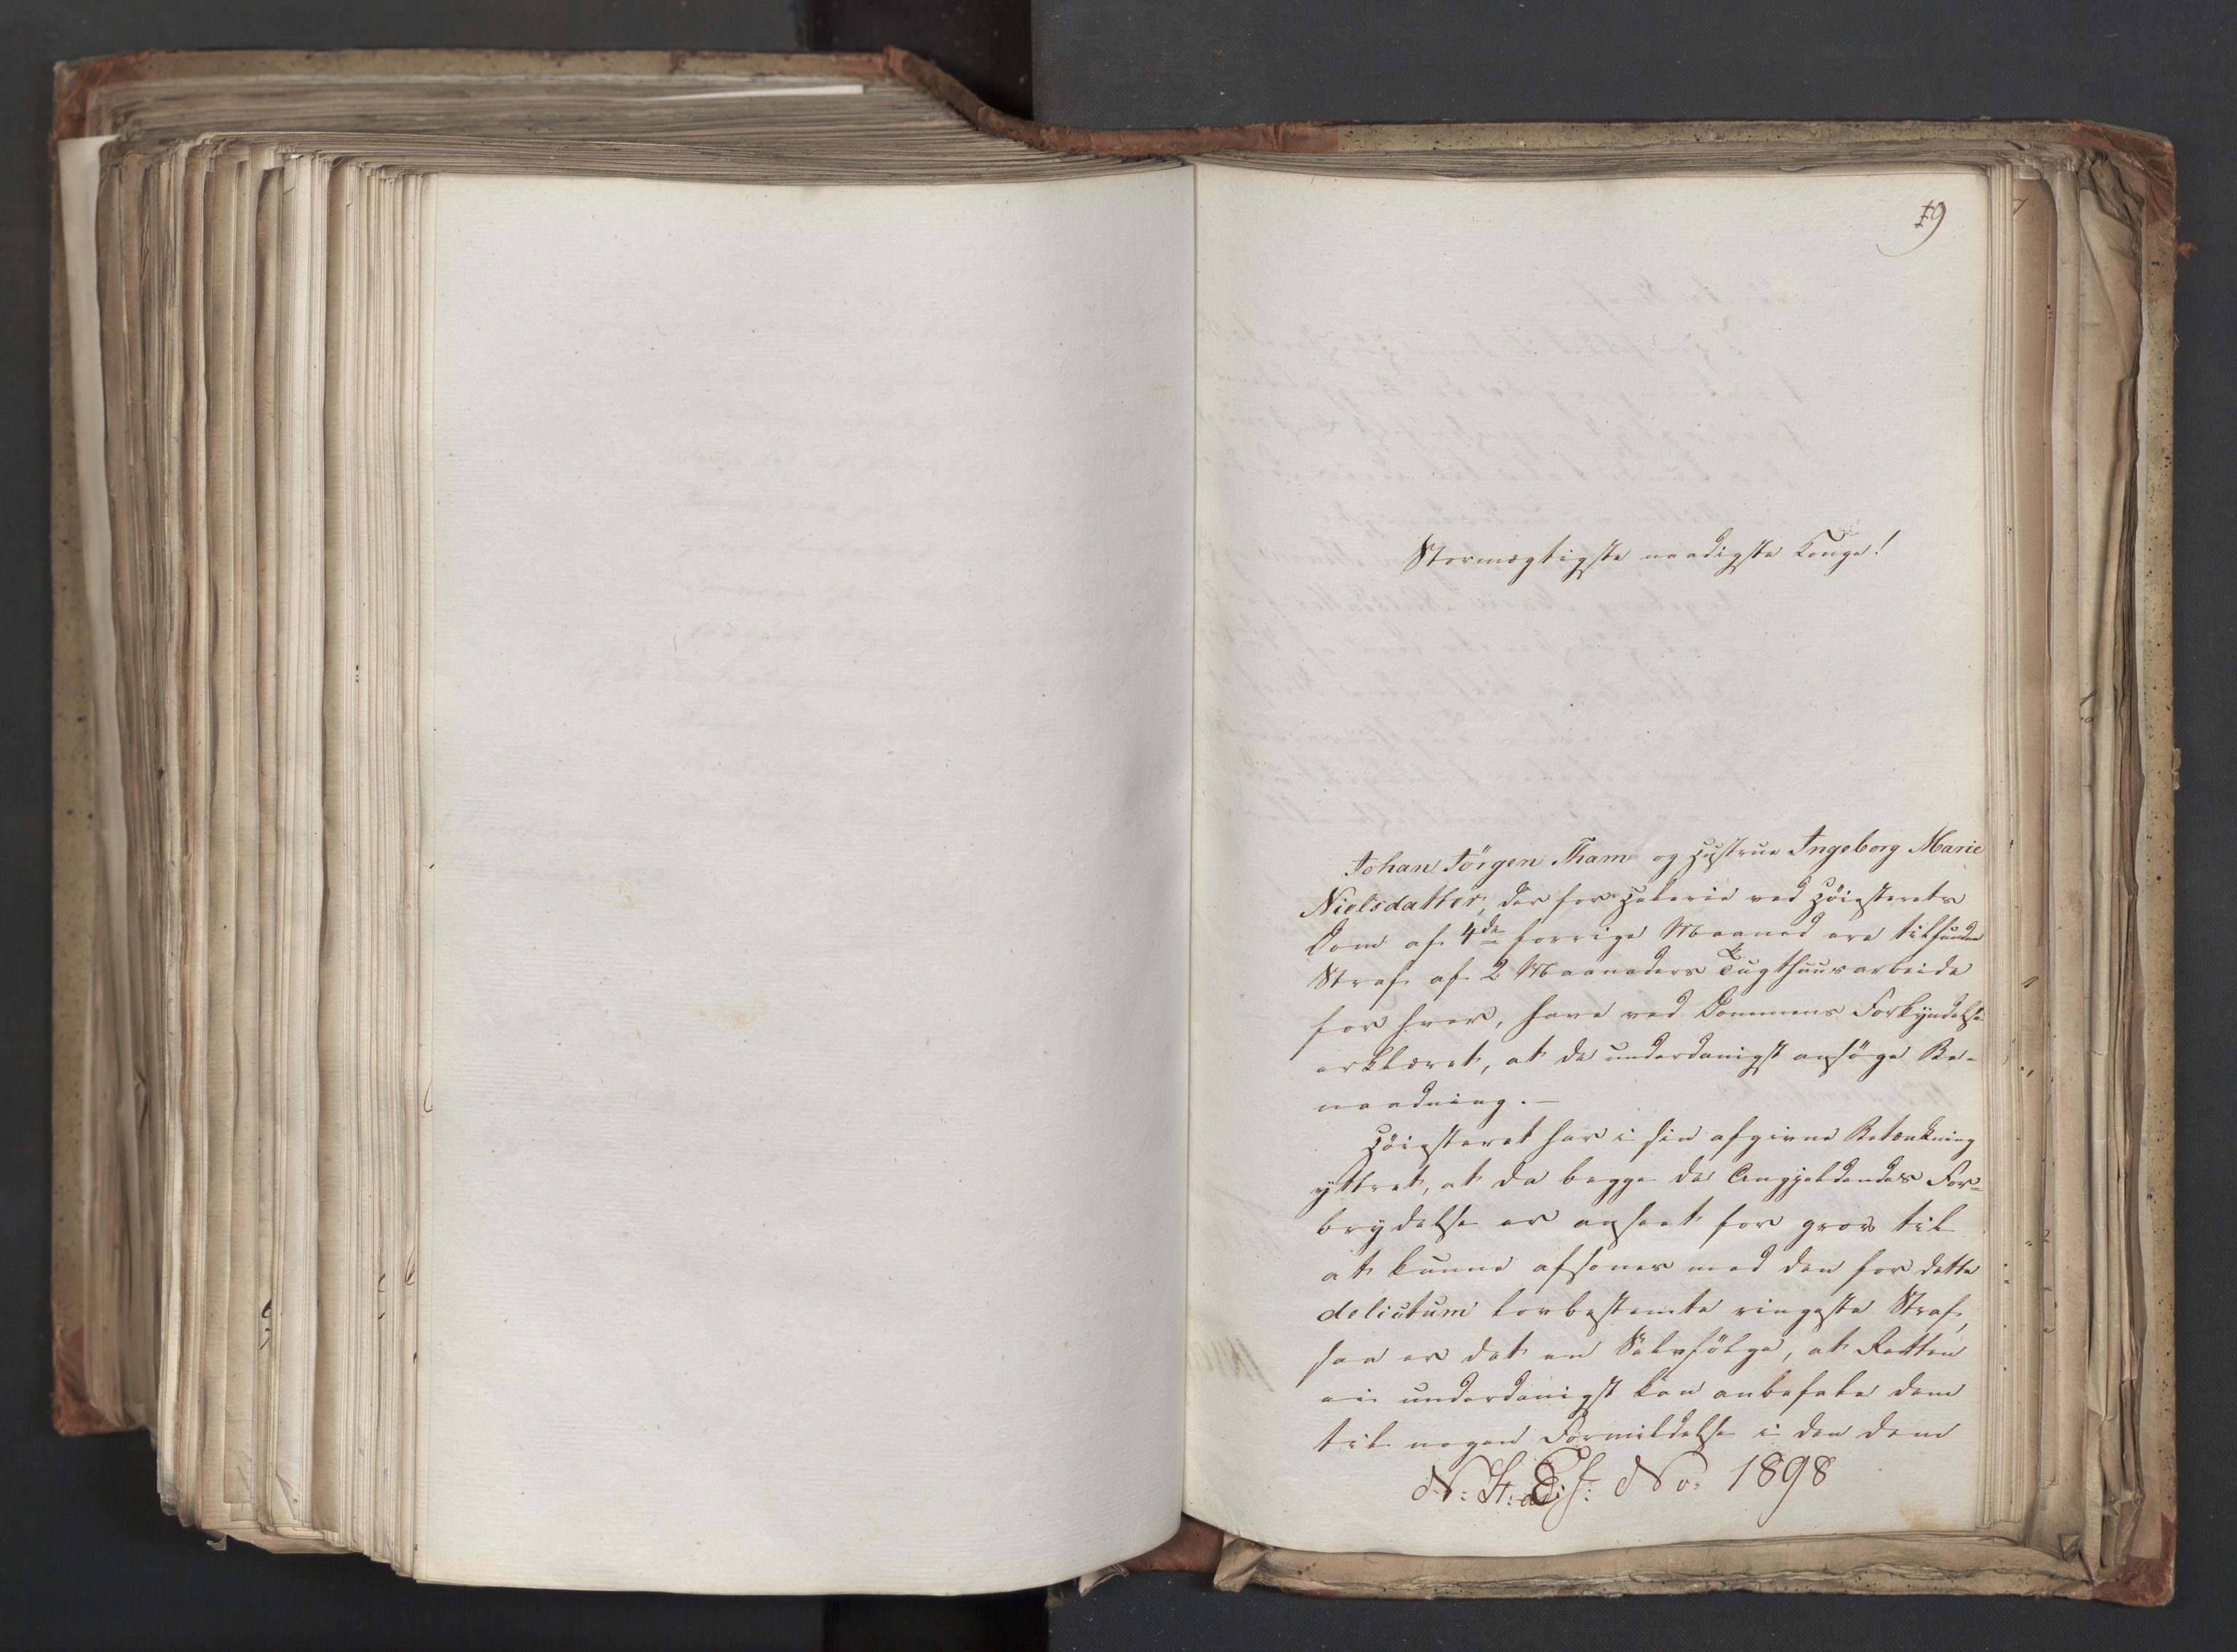 19
Stormægtigste naadigste Konge!
Johan Jörgen Tham og Hustrue Ingeborg Marie
Nielsdatter, der for Hælerie ved Höiesterets
Dom af 4de forrige Maaned ere tilfunden
Straf af 2 Maaneders Tugthuusarbeide
for hver, have ved Dommens Forkyndelse
erklæret, at de underdanigst ansöge Be-
naadning.—
Höiesteret har i sin afgivne Betænkning
yttret, at da begge de Angjeldendes For-
brydelse er anseet for grov til
at kunne afsones med den for dette
delictum lovbestemte ringeste Straf,
saa er det en Selvfölge, at Retten
ei underdanigst kan anbefale dem
til nogen Formildelse i den dem
No: 1898